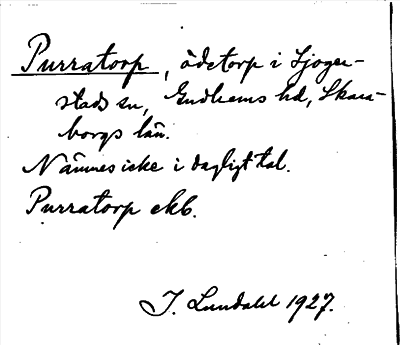 Purratorp, ödetorp i Sjoger-
stads sn, Gudhems hd, Skara-
borgs län.
Nämnes icke i dagligt tal.
Purratorp ekb.
J. Lundahl 1927.